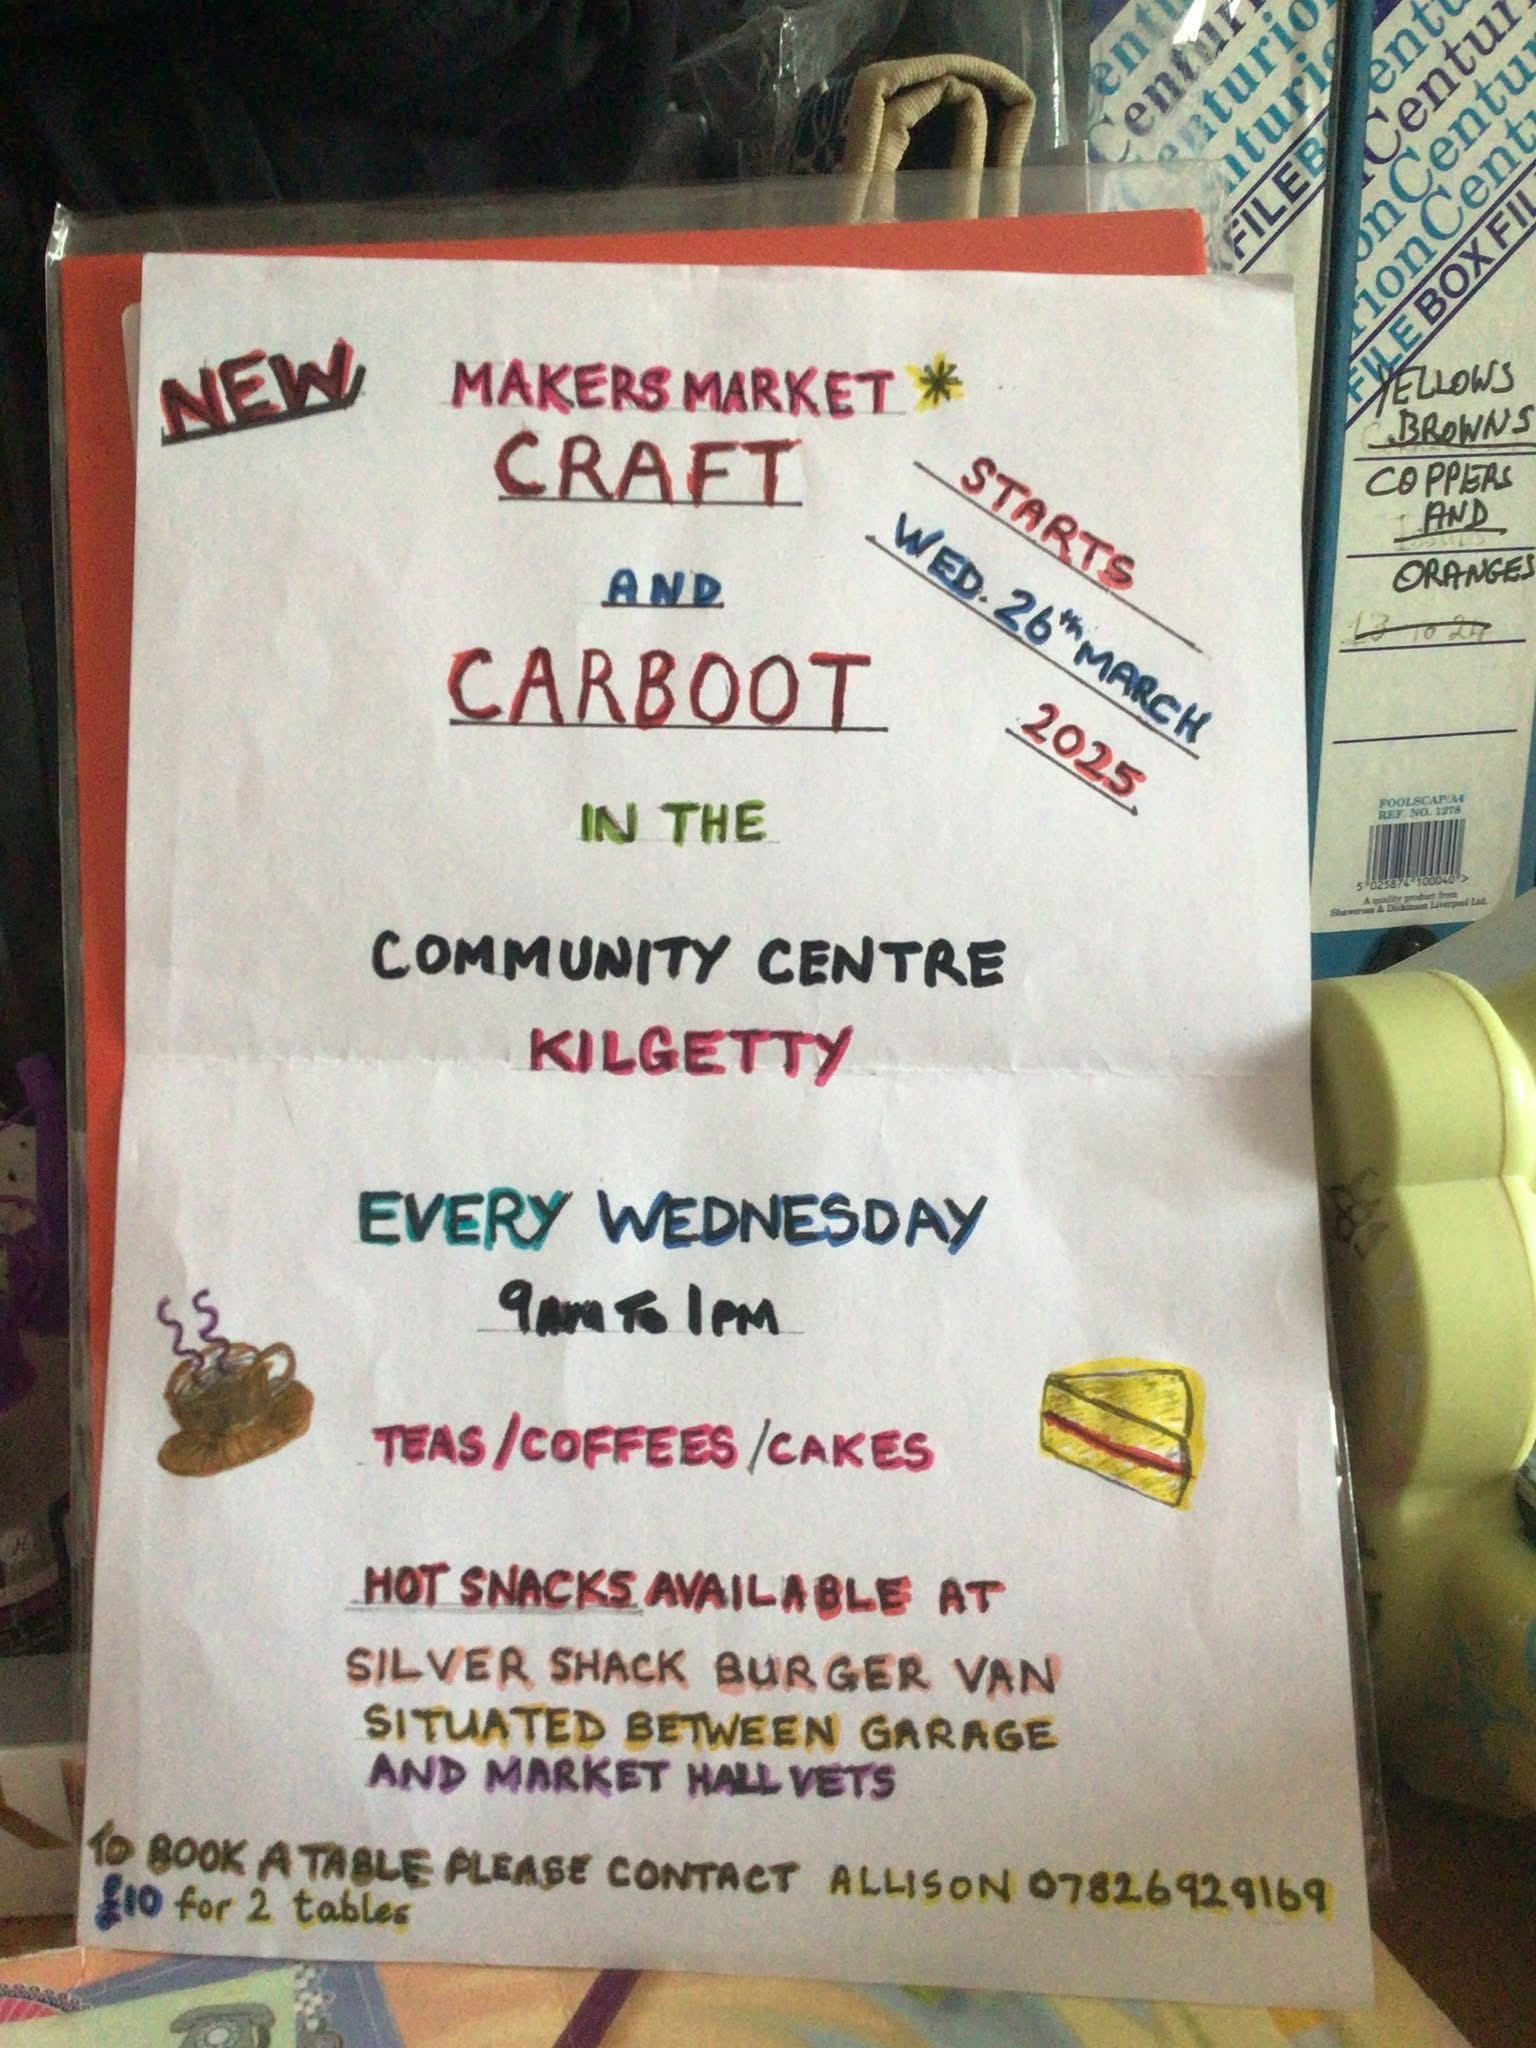 NEW
MAKERS MARKET *
CRAFT
AND
CARBOOT
STARTS
WED. 26th MARCH
2025
IN THE
COMMUNITY CENTRE
KILGETTY
EVERY WEDNESDAY
9am To 1PM
TEAS/COFFEES/CAKES
HOT SNACKS AVAILABLE AT
SILVER SHACK BURGER VAN
SITUATED BETWEEN GARAGE
AND MARKET HALL VETS
TO BOOK A TABLE PLEASE CONTACT ALLISON 07826929169
£10 for 2 tables
Centurion
FILE BOX FIL
YELLOWS
BROWNS
COPPERS
AND
ORANGES
13 to 24
FOOLSCAP/A4
REF. NO. 1278
5 025874 100040 >
A quality product from
Shawcross & Dickinson Liverpool Ltd.